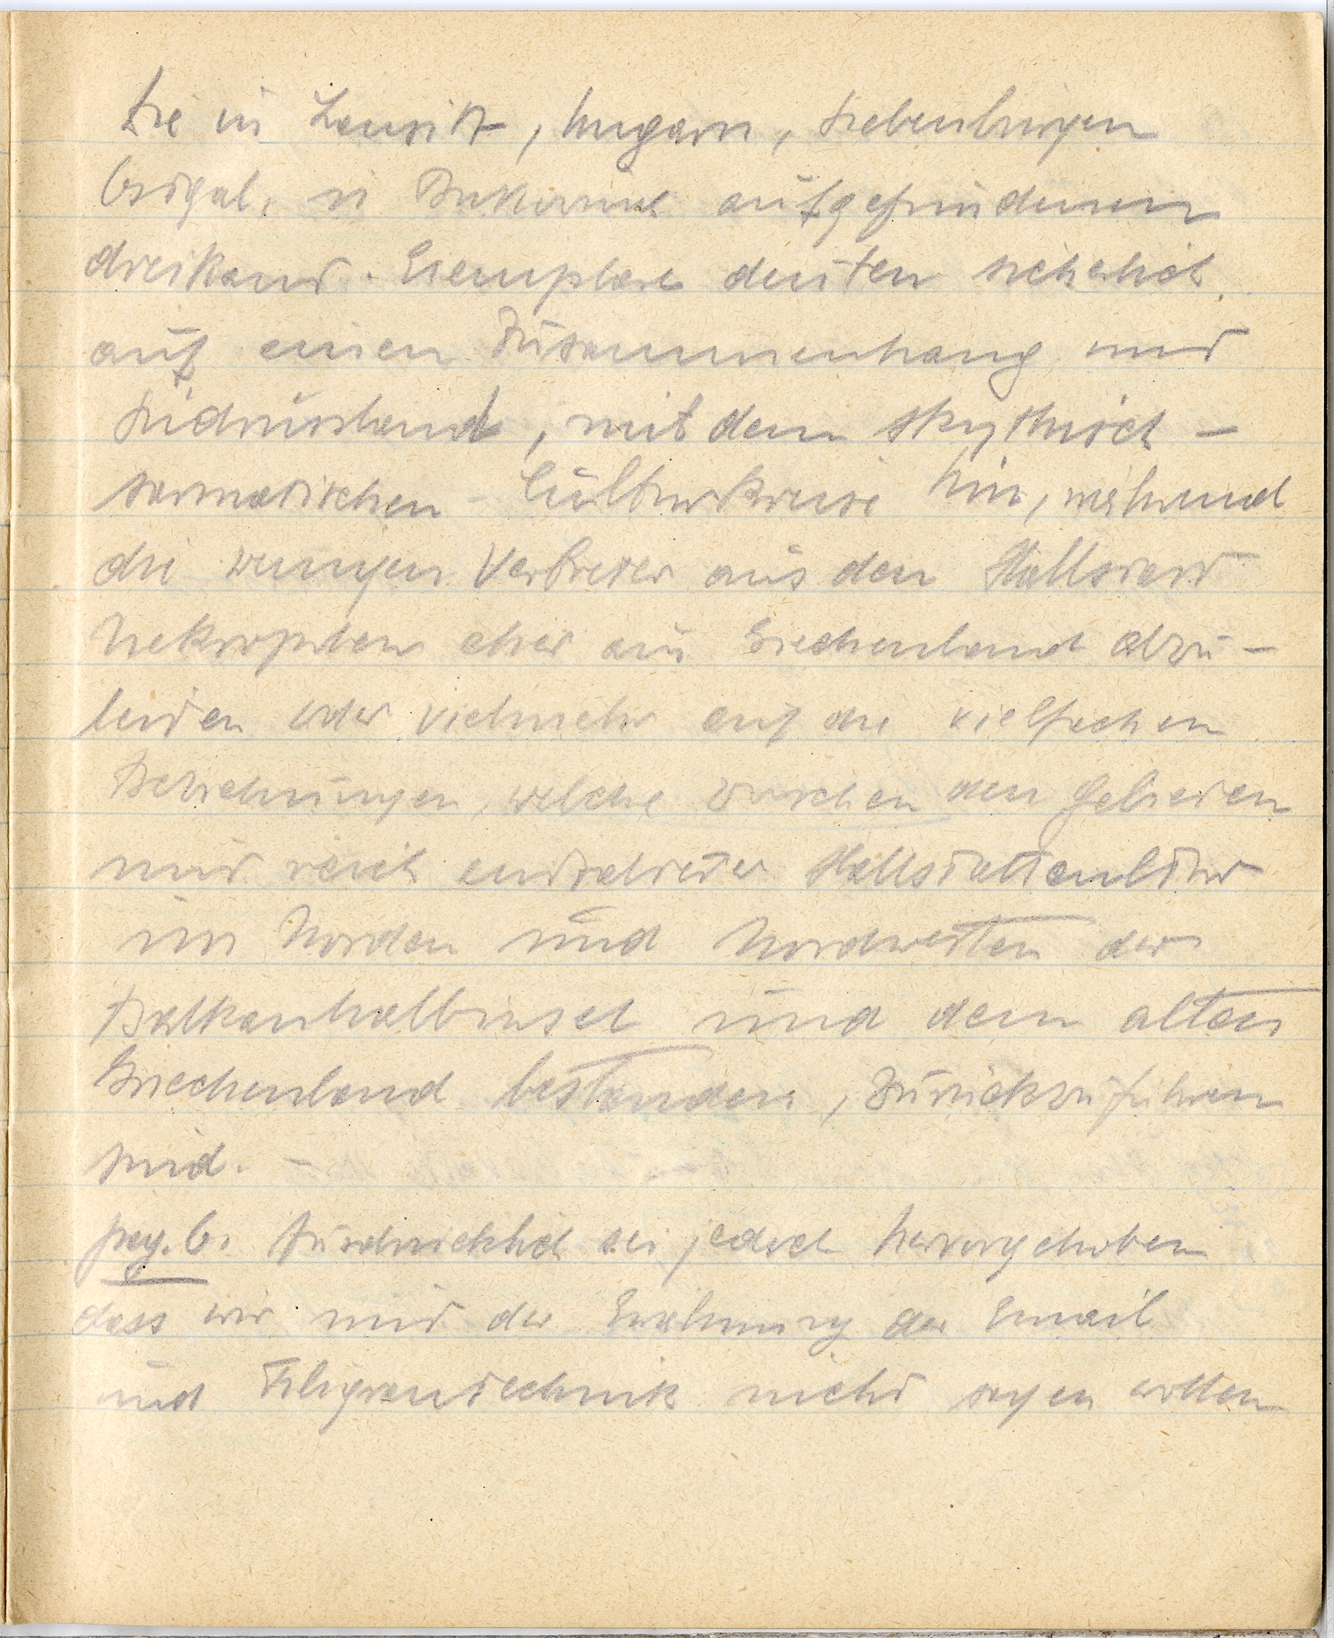 Die in Lausitz, Ungarn, Siebenbürgen
Ostgal. u Bukowina aufgefundenen
dreikant. Exemplare deuten sicherlich
auf einen Zusammenhang mit
Südrussland, mit dem skythisch –
sarmatischen – Culturkreise hin, während
die wenigen Vertreter aus den Hallstatt
Nekropolen eher aus Griechenland abzu –
leiten oder vielmehr auf die vielfachen
Beziehungen, welche zwischen den Gebieten
mit reich entwickelter Hallstattcultur
im Norden und Nordwesten der
Balkanhalbinsel und dem alten
Griechenland bestanden, zurückzuführen
sind. –
pag. 6. Ausdrücklich sei jedoch hervorgehoben
dass wir mit der Erwähnung der Email
und Filigrantechnik nicht sagen wollen